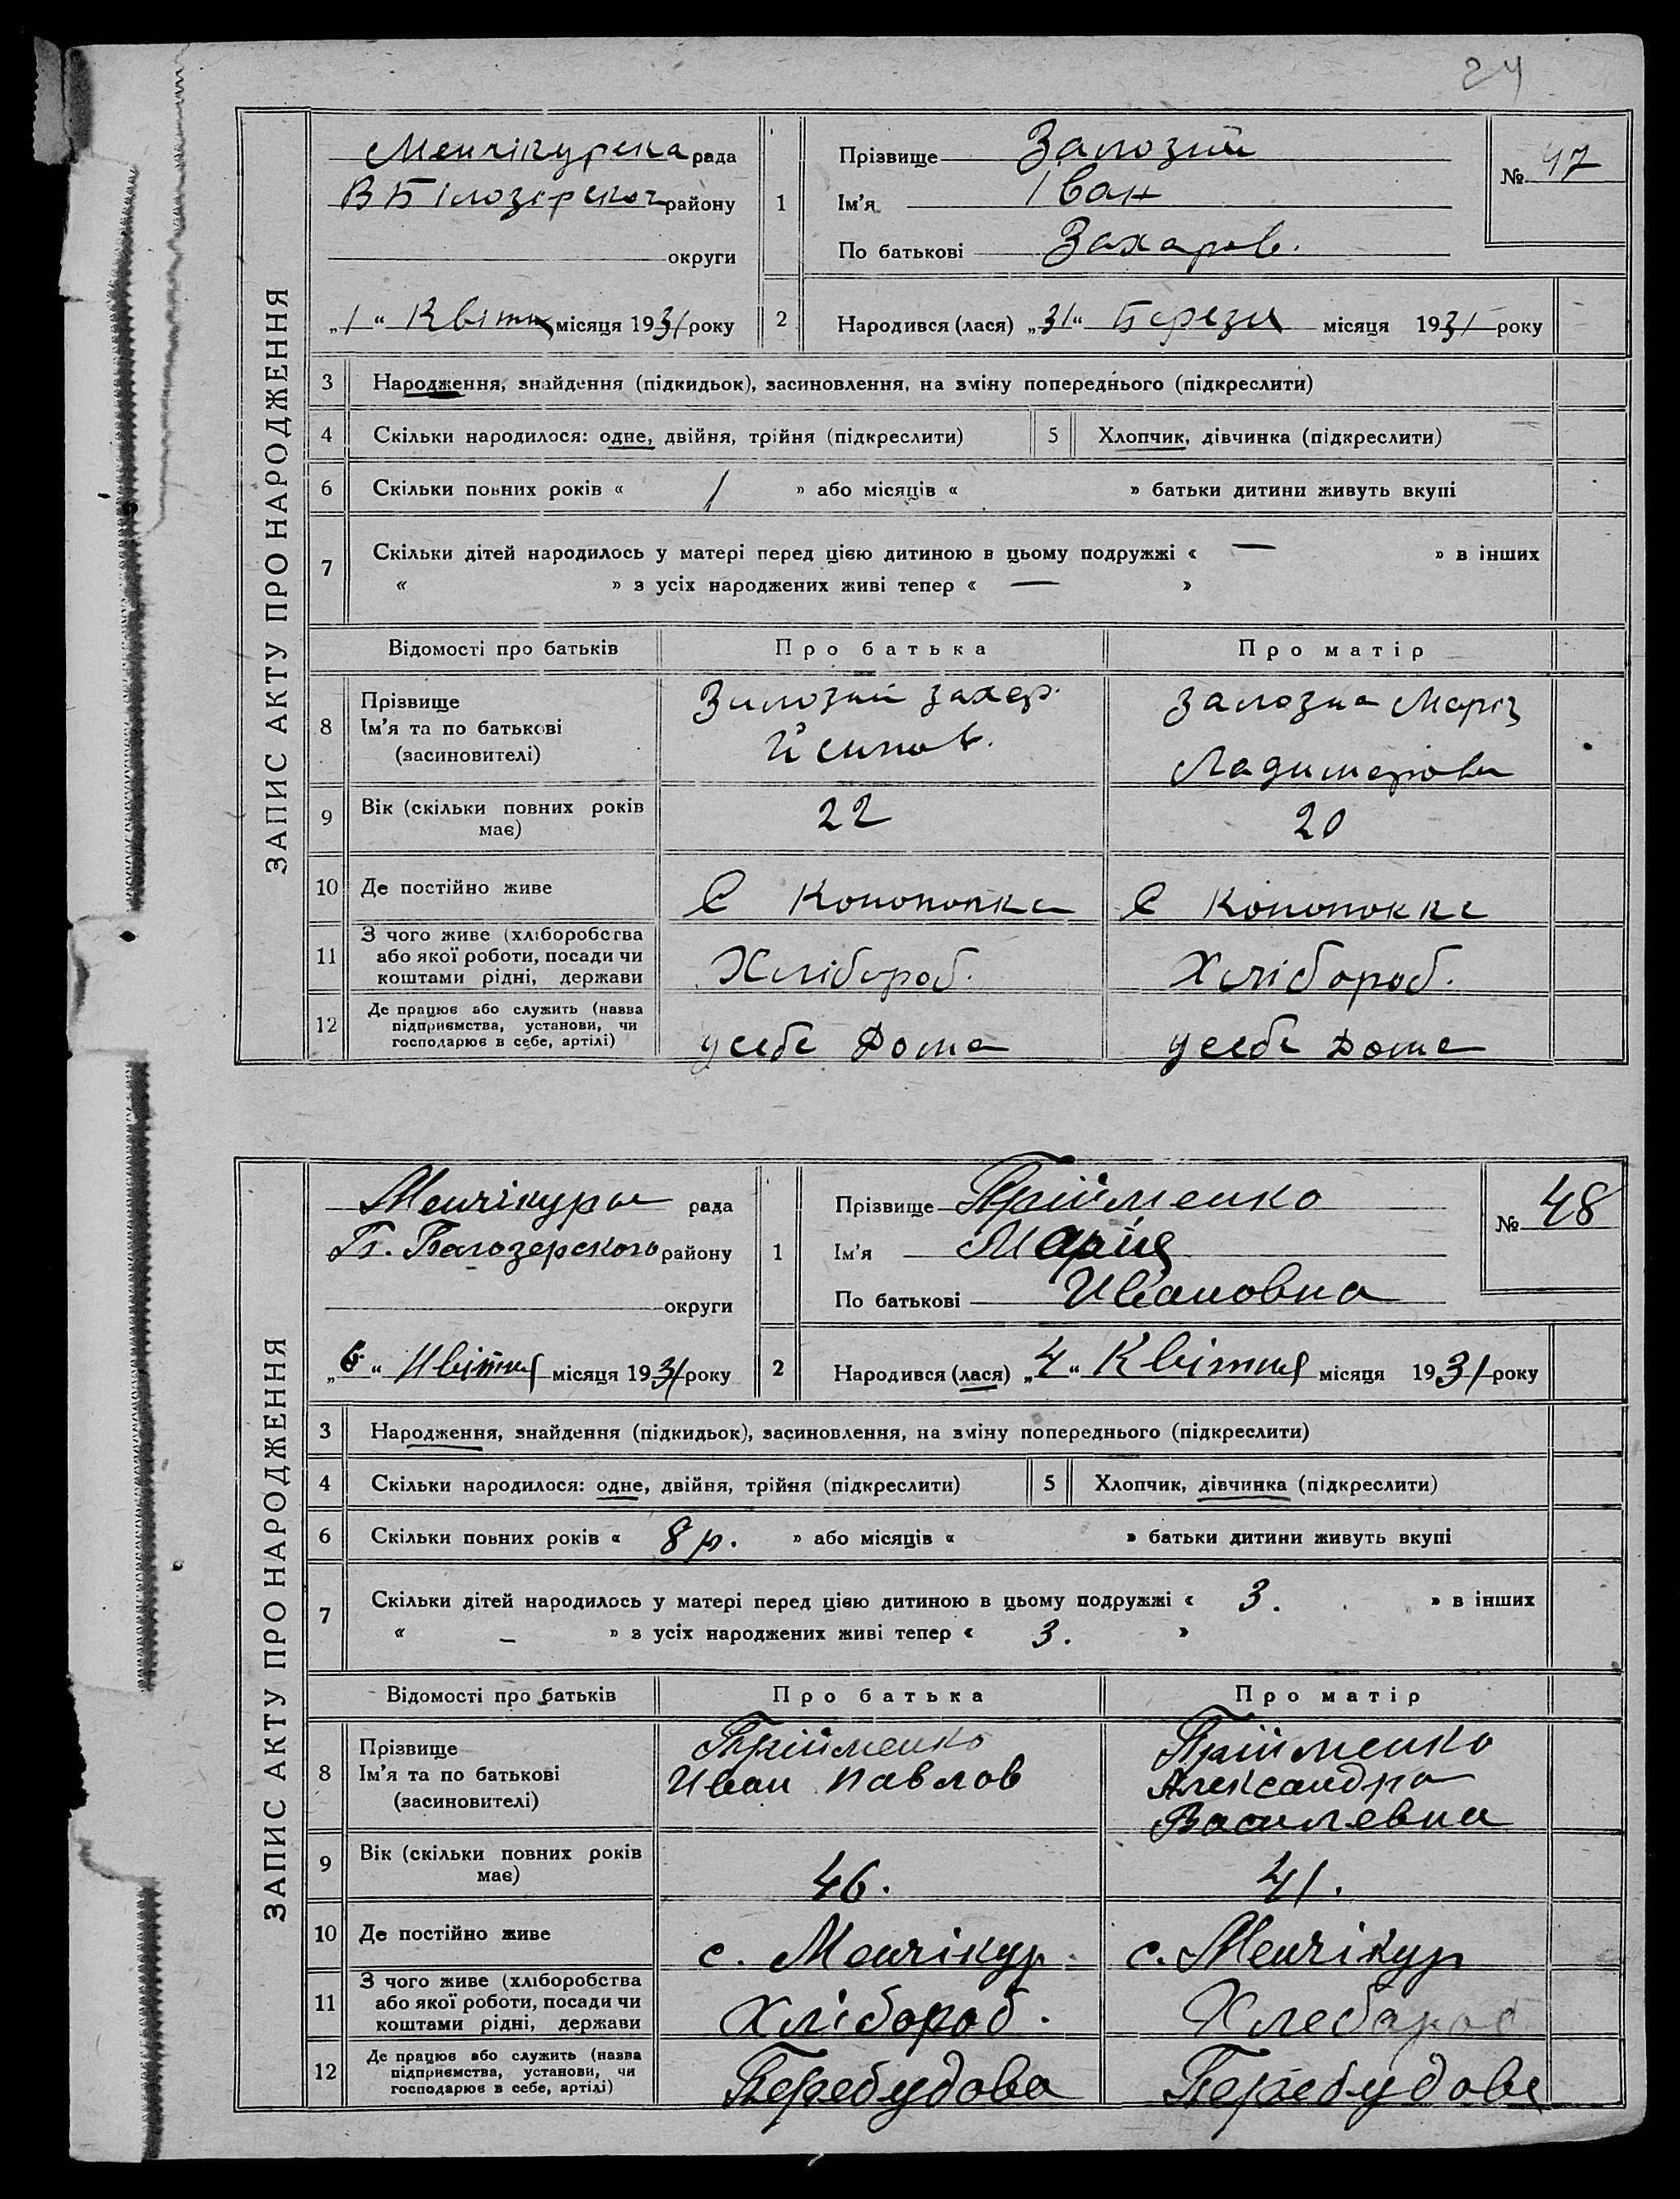 24
ЗАПИС АКТУ ПРО НАРОДЖЕННЯ
Менчікурска рада
В Білозерског району
округи
„1“ Квітня місяця 1931 року
1
Прізвище Залозній
Ім'я Іван
По батькові Захаров.
№ 47
2
Народився (лася) „31“ Березня місяця 1931 року
3 Народження, знайдення (підкидьок), засиновлення, на зміну попереднього (підкреслити)
4 Скільки народилося: одне, двійня, трійня (підкреслити) 5 Хлопчик, дівчинка (підкреслити)
6 Скільки повних років « 1 » або місяців « » батьки дитини живуть вкупі
7 Скільки дітей народилось у матері перед цією дитиною в цьому подружжі « — » в інших
« » з усіх народжених живі тепер « — »
Відомості про батьків Про батька Про матір
8 Прізвище
Ім'я та по батькові
(засновителі)
Залозній Захар.
Залозна Марія
Ладимерівна
9 Вік (скільки повних років
має)
22 20
10 Де постійно живе С С
11 З чого живе (хліборобства
або якої роботи, посади чи
коштами рідні, держави
Хлібороб. Хлібороб.
12 Де працює або служить (назва
підприємства, установи, чи
господарює в себе, артілі)
усебе Дома усебе Дома
ЗАПИС АКТУ ПРО НАРОДЖЕННЯ
Менчікуры рада
Б. Белозерского району
округи
„6“ Квітня місяця 1931 року
1
Прізвище Прійменко
Ім'я Марія
По батькові Ивановна
№ 48
2
Народився (лася) „4“ Квітня місяця 1931 року
3 Народження, знайдення (підкидьок), засиновлення, на зміну попереднього (підкреслити)
4 Скільки народилося: одне, двійня, трійня (підкреслити) 5 Хлопчик, дівчинка (підкреслити)
6 Скільки повних років « 8 р. » або місяців « » батьки дитини живуть вкупі
7 Скільки дітей народилось у матері перед цією дитиною в цьому подружжі « 3. » в інших
« – » з усіх народжених живі тепер « 3. »
Відомості про батьків Про батька Про матір
8 Прізвище
Ім'я та по батькові
(засиновителі)
Прійменко
Иван Павлов
Прійменко
Александра
Василевна
9 Вік (скільки повних років
має)
46. 41.
10 Де постійно живе с. Менчікур. с. Менчікур
11 З чого живе (хліборобства
або якої роботи, посади чи
коштами рідні, держави
Хлібороб. Хлебароб
12 Де працює або служить (назва
підприємства, установи, чи
господарює в себе, артілі)
Перебудова Перебудова